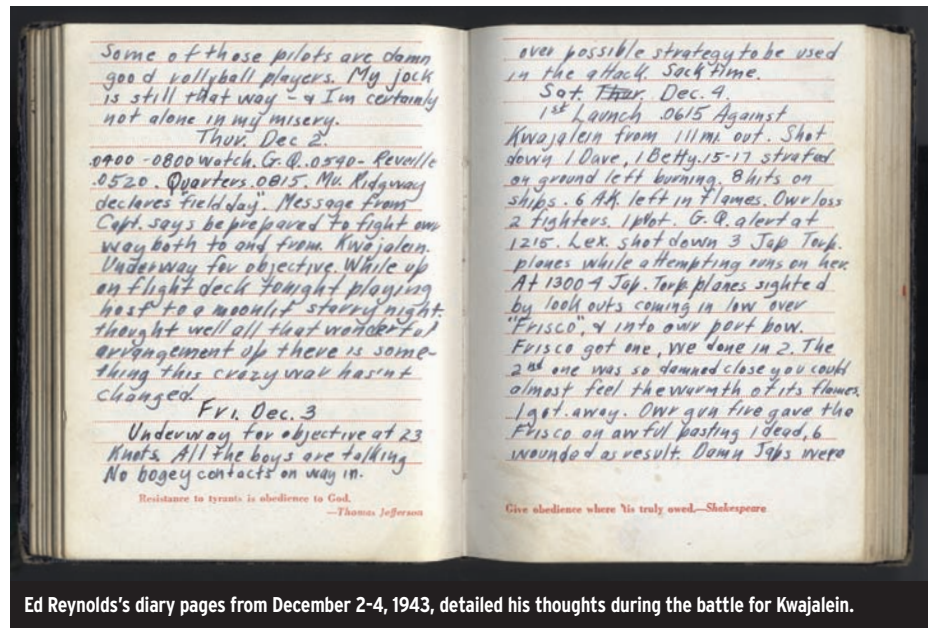 Some of those pilots are damn
good vollyball players. My jock
is still that way - & I'm certainly
not alone in my misery.
Thur. Dec 2.
.0400 - 0800 watch. G.Q. .0540 - Reveille
.0520. Quarters .0815. Mr. Ridgway
declares "field day". Message from
Capt. says be prepared to fight our
way both to and from. Kwajalein.
Underway for objective. While up
on flight deck tonight playing
host to a moonlit starry night.
thought well all that wonderful
arrangement up there is some-
thing this crazy war hasn't
changed.
Fri. Dec. 3
Underway for objective at 23
Knots. All the boys are talking
No bogey contacts on way in.
Resistance to tyrants is obedience to God.
—Thomas Jefferson
over possible strategy to be used
in the attack. Sack time.
Sat. Thur. Dec. 4.
1st Launch .0615 Against
Kwajalein from 111 mi. out. Shot
down 1 Dave, 1 Betty. 15-17 strafed
on ground left burning. 8 hits on
ships. 6 AK. left in flames. Our loss
2 fighters. 1 pilot. G.Q. alert at
1215. Lex. shot down 3 Jap Torp.
planes while attempting runs on her.
At 1300 4 Jap. Torp. planes sighted
by look outs coming in low over
"Frisco", & into our port bow.
Frisco got one, we done in 2. The
2nd one was so damned close you could
almost feel the warmth of its flames.
1 got. away. Our gun fire gave the
Frisco an awful pasting 1 dead, 6
wounded as result. Damn Japs were
Give obedience where 'tis truly owed.—Shakespeare
Ed Reynolds's diary pages from December 2-4, 1943, detailed his thoughts during the battle for Kwajalein.